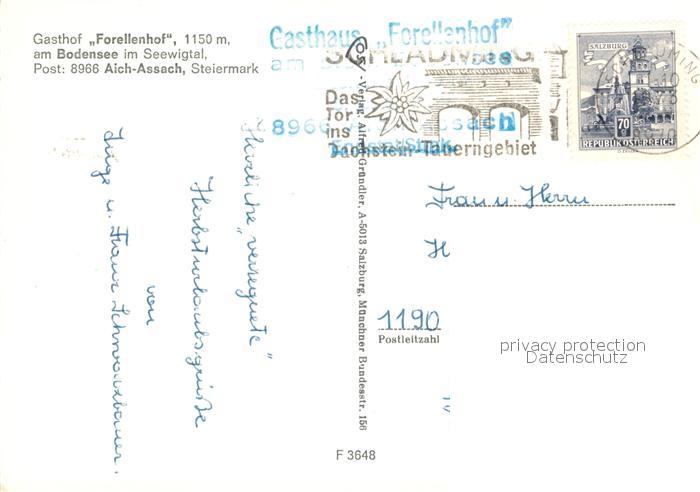 Gasthof „Forellenhof“, 1150 m,
am Bodensee im Seewigtal,
Post: 8966 Aich-Assach, Steiermark
Gasthaus „Forellenhof“
am
see
8966
ssach
SCHLADMING
Das
Tor
ins
Dachstein-Tauerngebiet
SALZBURG
70 g
REPUBLIK ÖSTERREICH
Herzliche „verregnete“
Herbsturlaubsgrüsse
von
Inge u. Franz
Verlag Alfred Gründler, A-5013 Salzburg, Münchner Bundesstr. 156
Frau u. Herrn
H
1190
Postleitzahl
privacy protection
Datenschutz
F 3648